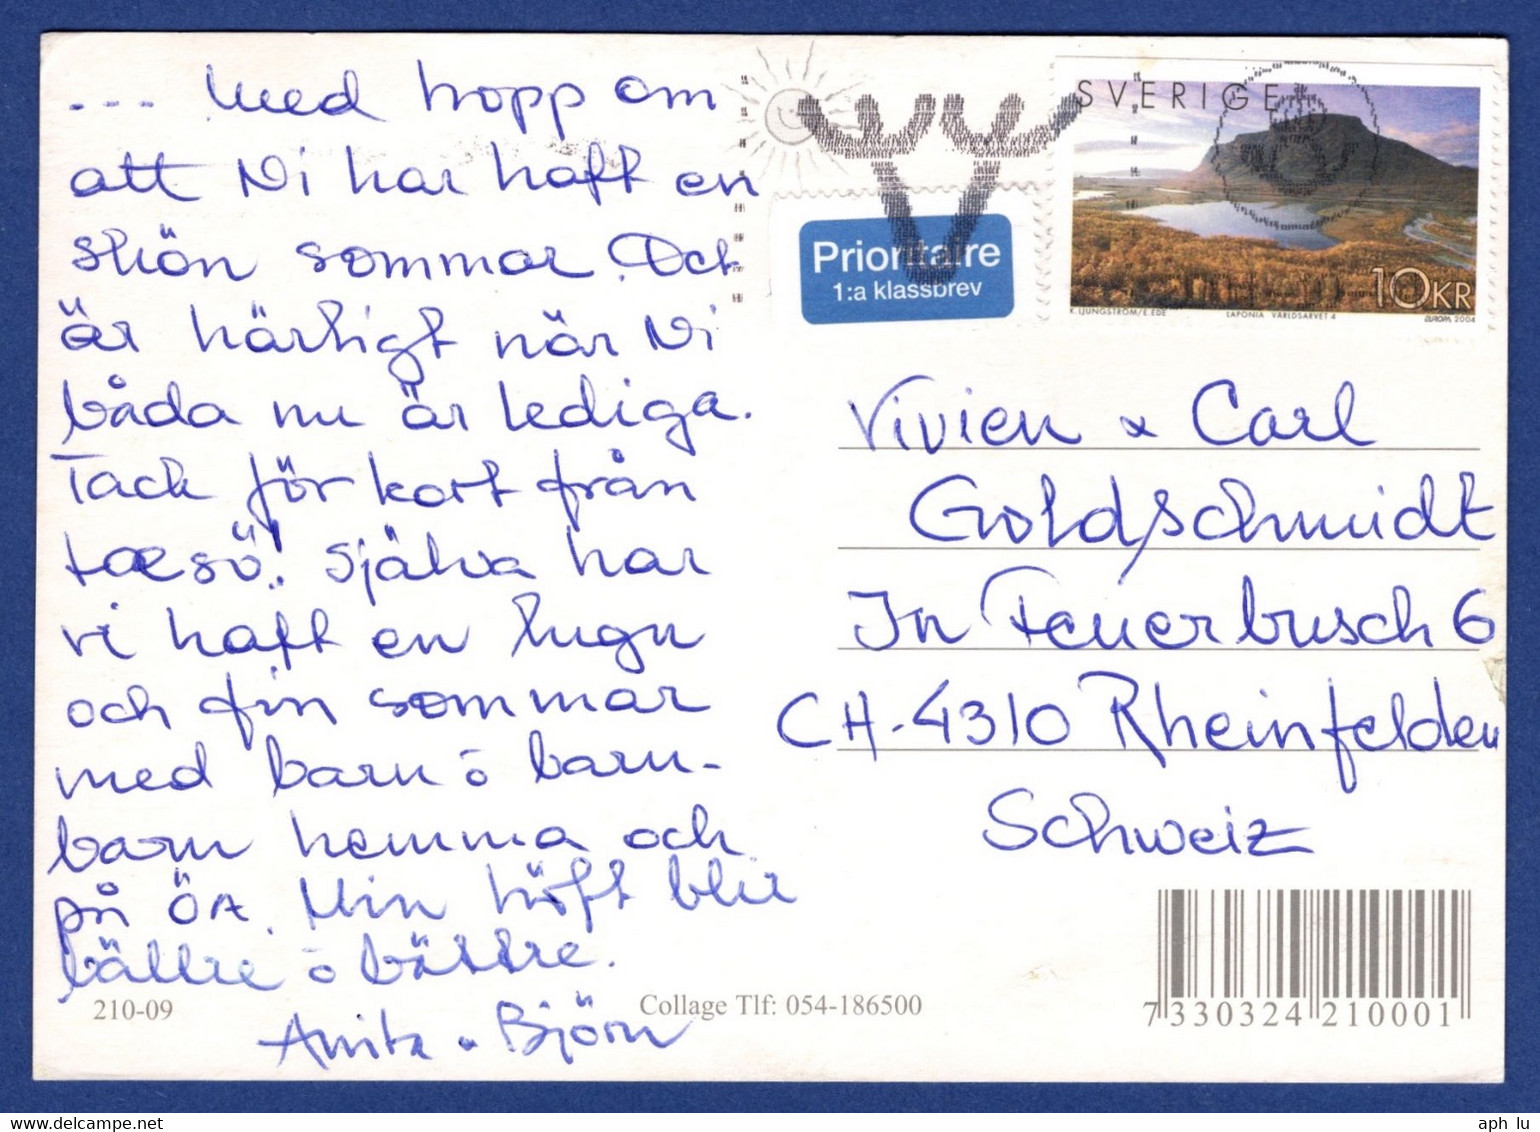 ... Med hopp om
att Ni har haft en
skön sommar. Det
är härligt när Ni
båda nu är lediga.
Tack för kort från
själva har
vi haft en lugn
och fin sommar
med barn o barn-
barn hemma och
på ÖA. Min höft blir
bättre o bättre.
Anita & Björn
210-09
Collage Tlf: 054-186500
SVERIGE
10KR
K. LJUNGSTRÖM/E.EDE
LAPONIA VÄRLDSARVET 4
EUROPA 2004
Prioritaire
1:a klassbrev
Vivien & Carl
Goldschmidt
In Feuerbusch 6
CH-4310 Rheinfelden
Schweiz
7 330324 210001
www.delcampe.net
aph lu